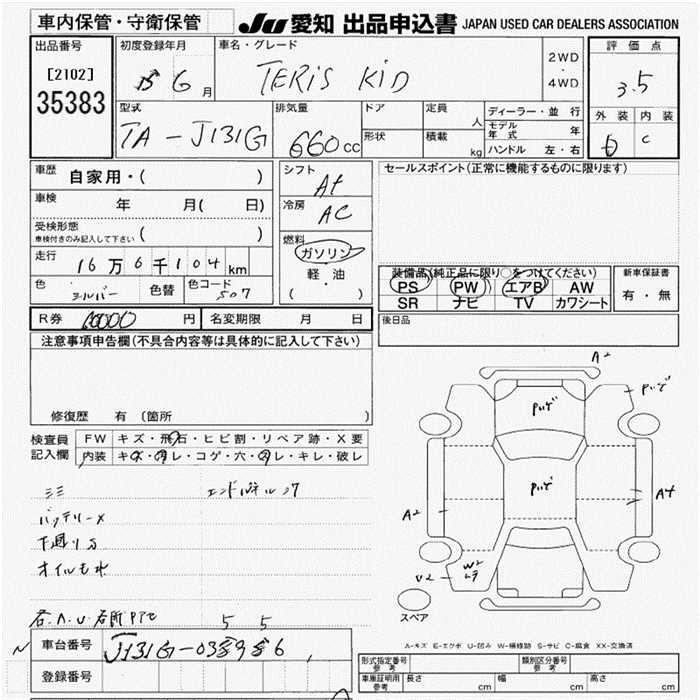 車内保管・守衛保管
JU 愛知 出品申込書 JAPAN USED CAR DEALERS ASSOCIATION
出品番号
[2102]
35383
初度登録年月
6 月
車名・グレード
TERiS KiD
2WD
・
4WD
評価点
3.5
外装 内装
C
型式
TA-J131G
排気量
660 cc
ドア
定員
人
形状
積載
kg
ディーラー・並行
モデル年式 年
ハンドル 左・右
車歴
自家用・( )
車検
年 月( 日)
受検形態
車検付きのみ記入して下さい ( )
走行
16万6千104 km
色
シルバー
色替
色コード
S07
シフト
At
冷房
AC
燃料
ガソリン
軽・油
( )
セールスポイント(正常に機能するものに限ります)
装備品(純正品に限り○をつけてください)
PS PW エアB AW
SR ナビ TV カワシート
新車保証書
有・無
R券
円
名変期限 月 日
後日品
注意事項申告欄(不具合内容等は具体的に記入して下さい)
修復歴 有 (箇所 )
検査員
記入欄
FW キズ・飛石・ヒビ割・リペア跡・X要
内装 キズ・汚レ・コゲ・穴・スレ・キレ・破レ
バッテリーX
下廻りS
オイルもれ
5 5
A2
A2
A4
U2
W2
スペア
A-キズ E-エクボ U-凹み W-補修跡 S-サビ C-腐食 XX-交換済
車台番号
登録番号
型式指定番号
参考
類別区分番号
参考
車庫証明用
参考
長さ cm
幅 cm
高さ cm